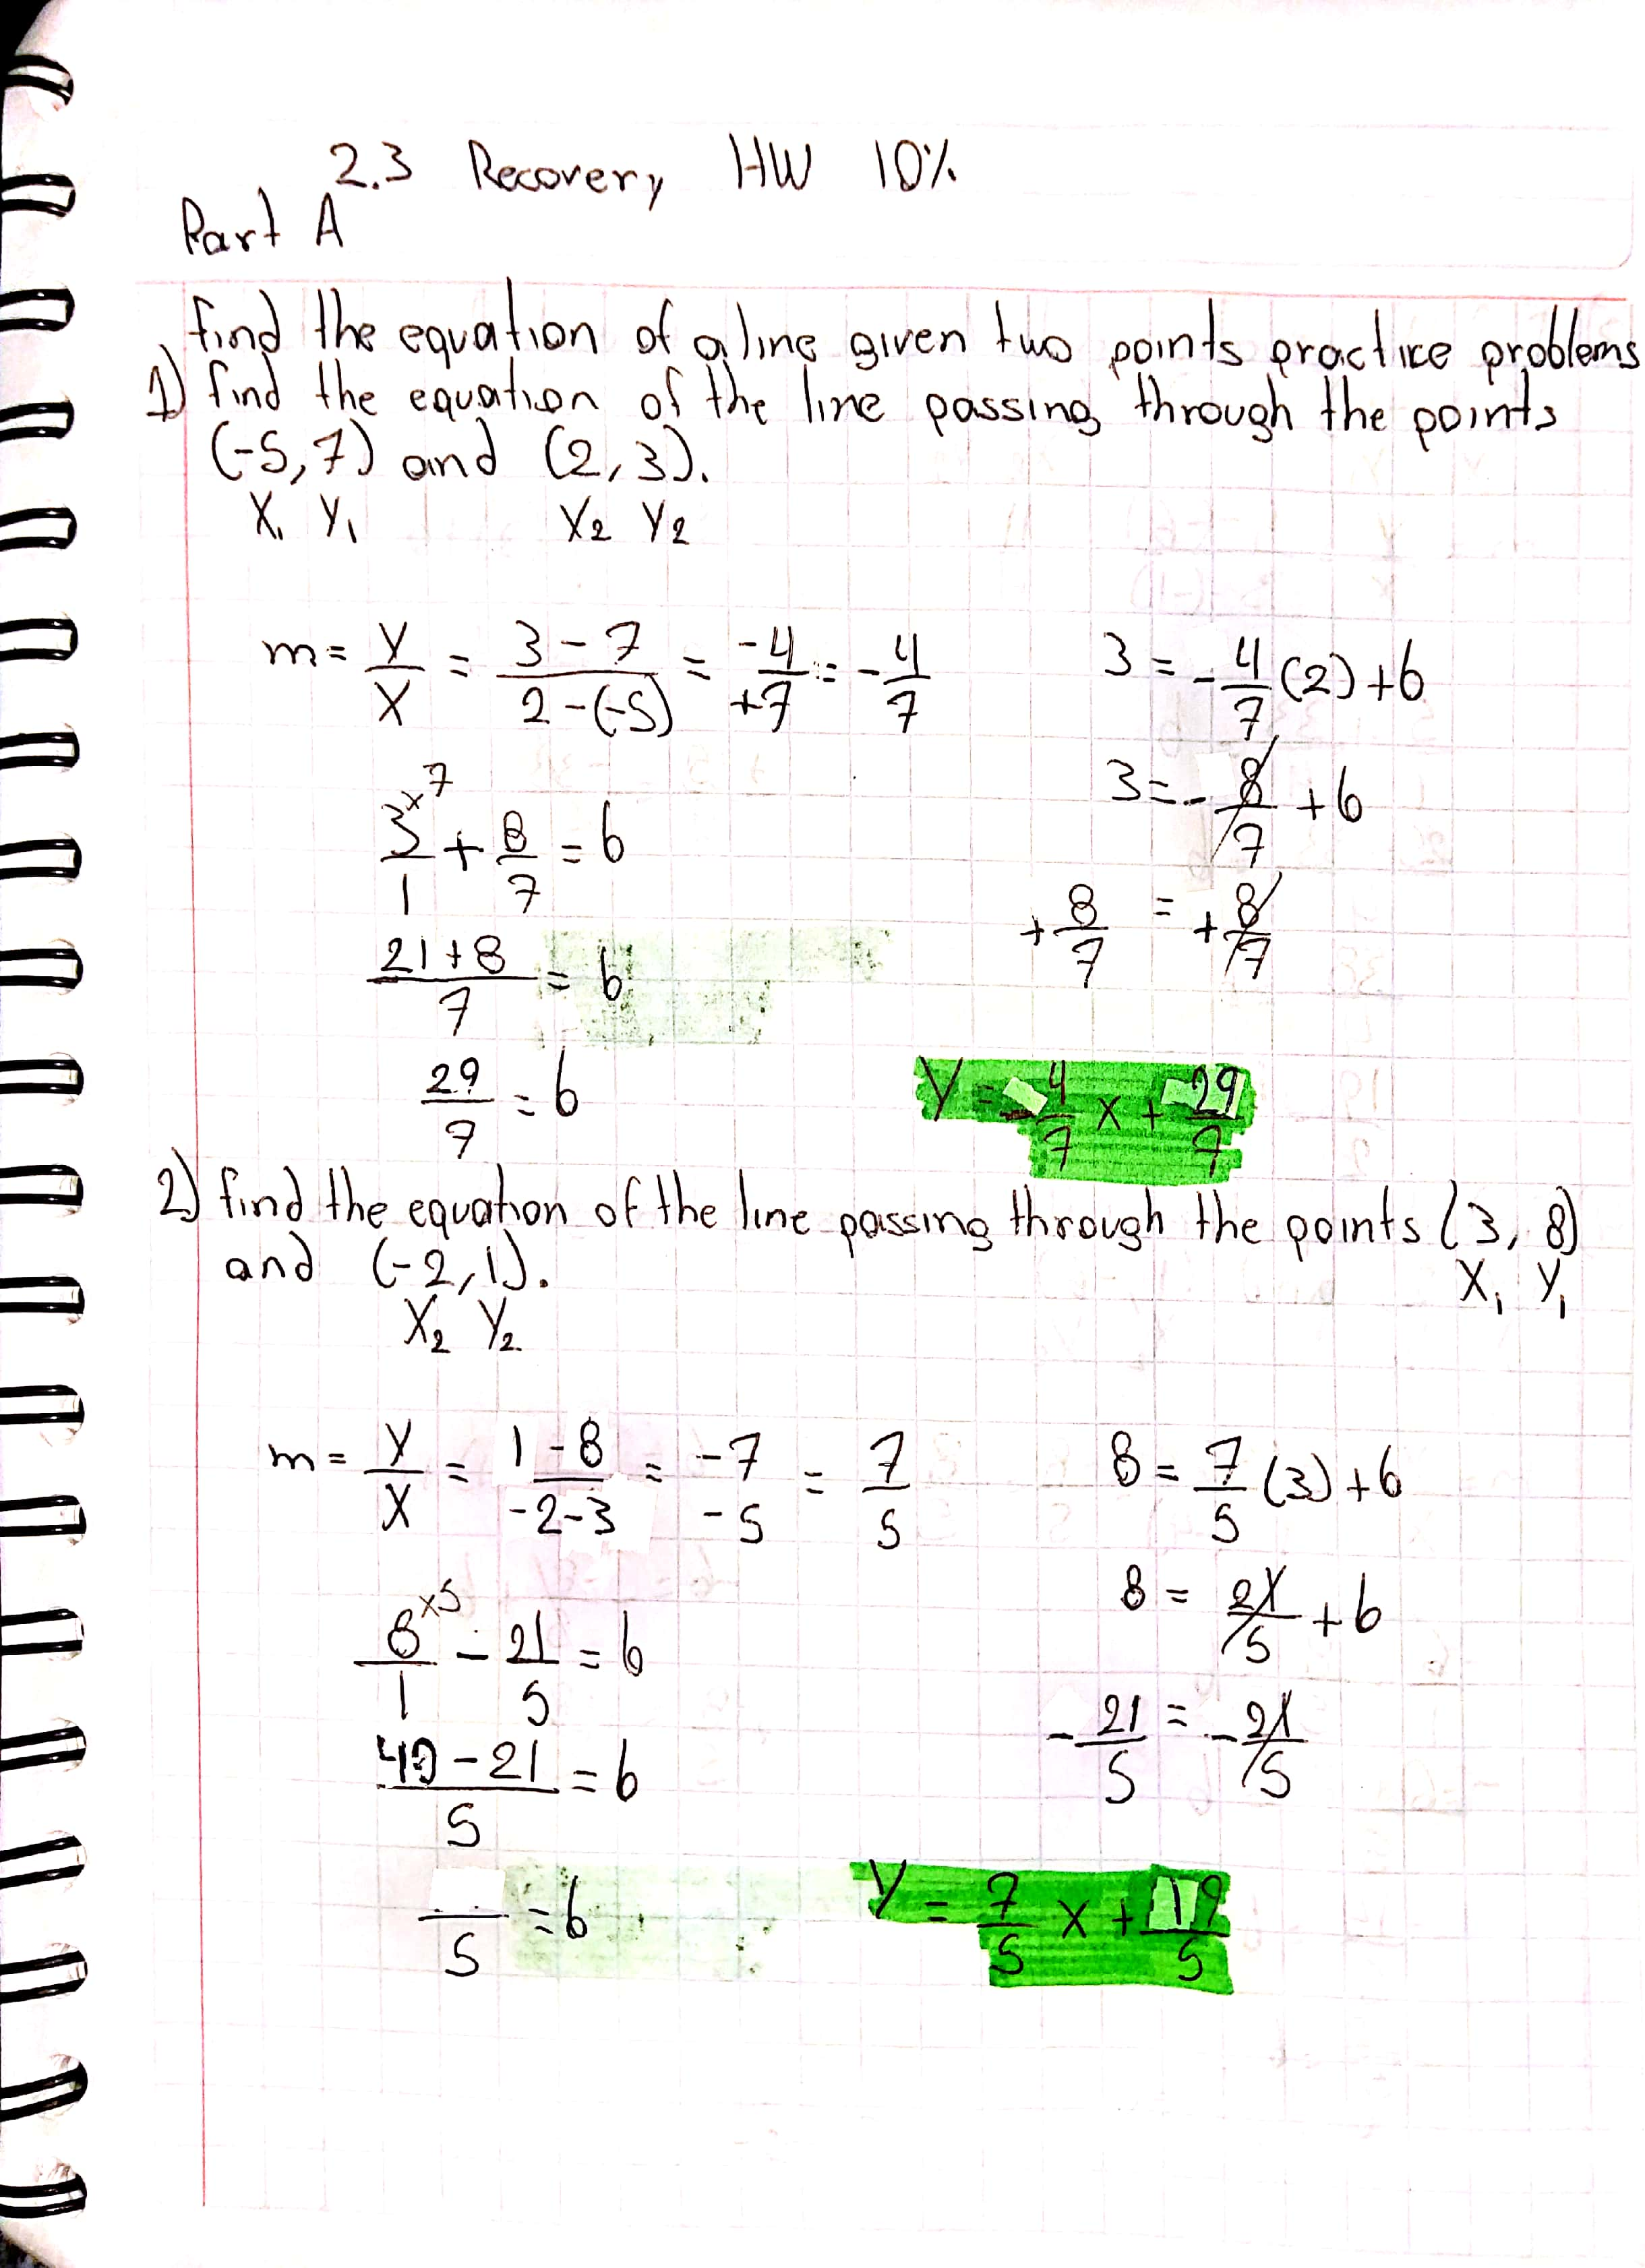 2.3 Recovery HW 10%
Part A
find the equation of a line given two points practice problems
1) find the equation of the line passing through the points
(-5,7) and (2,3).
X₁ Y₁ X₂ Y₂
m = Y/X = 3-7/2-(-5) = -4/+7 = -4/7
3 = -4/7 (2) + b
3 = -8/7 + b
3/1 ×7 + 8/7 = b
+8/7 = +8/7
21+8/7 = b
29/7 = b
Y = -4/7 X + 29/7
2) find the equation of the line passing through the points (3, 8)
and (-2,1).
X₁ Y₁
X₂ Y₂
m = Y/X = 1-8/-2-3 = -7/-5 = 7/5
8 = 7/5 (3) + b
8 = 21/5 + b
8/1 ×5 - 21/5 = b
-21/5 = -21/5
40-21/5 = b
/5 = b
Y = 7/5 X + 19/5